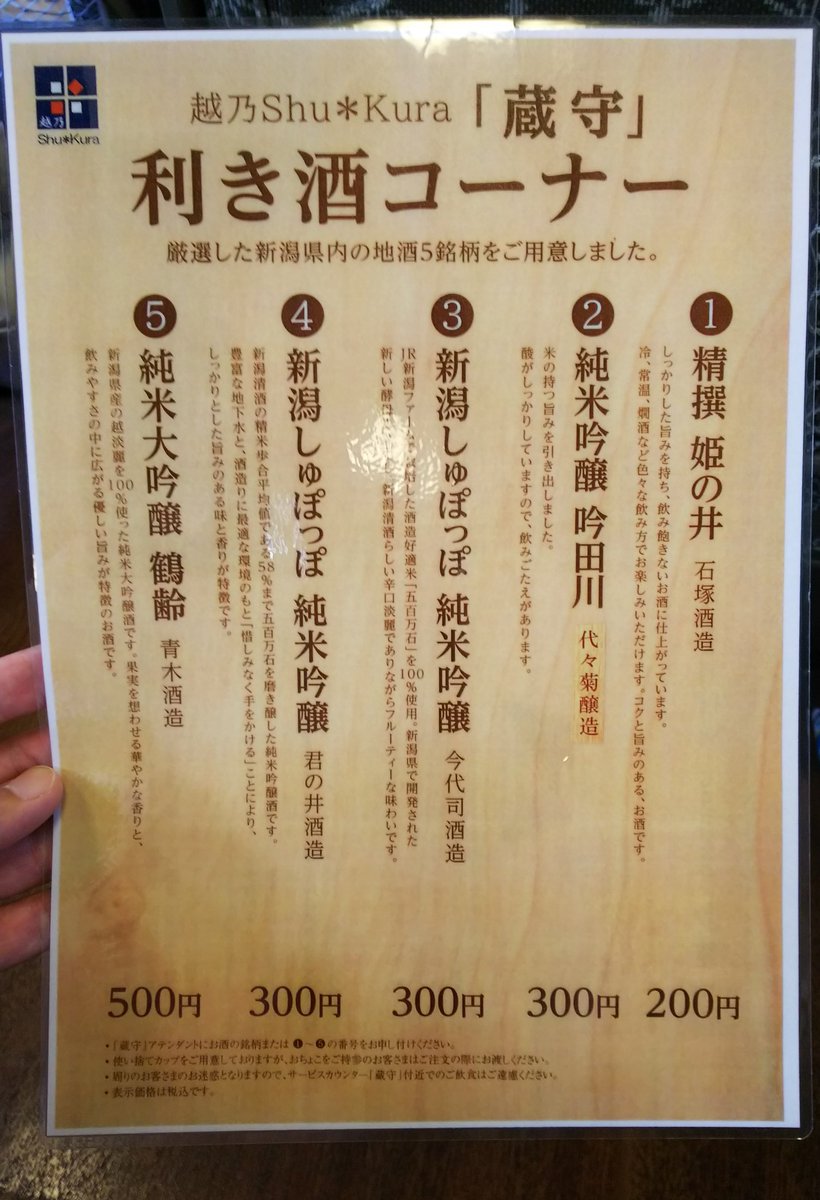 越乃
Shu*Kura
越乃Shu*Kura「蔵守」
利き酒コーナー
厳選した新潟県内の地酒5銘柄をご用意しました。
1
精撰 姫の井 石塚酒造
しっかりした旨みを持ち、飲み飽きないお酒に仕上がっています。
冷、常温、燗酒など色々な飲み方でお楽しみいただけます。コクと旨みのある、お酒です。
200円
2
純米吟醸 吟田川 代々菊醸造
米の持つ旨みを引き出しました。
酸がしっかりしていますので、飲みごたえがあります。
300円
3
新潟しゅぽっぽ 純米吟醸 今代司酒造
JR新潟ファームで した酒造好適米「五百万石」を100%使用。新潟県で開発された
新しい酵母 新潟清酒らしい辛口淡麗でありながらフルーティーな味わいです。
300円
4
新潟しゅぽっぽ 純米吟醸 君の井酒造
新潟清酒の精米歩合平均値である58%まで五百万石を磨き醸した純米吟醸酒です。
豊富な地下水と、酒造りに最適な環境のもと「惜しみなく手をかける」ことにより、
しっかりとした旨みのある味と香りが特徴です。
300円
5
純米大吟醸 鶴齢 青木酒造
新潟県産の越淡麗を100%使った純米大吟醸酒です。果実を想わせる華やかな香りと、
飲みやすさの中に広がる優しい旨みが特徴のお酒です。
500円
・「蔵守」アテンダントにお酒の銘柄または1~5の番号をお申し付けください。
・使い捨てカップをご用意しておりますが、おちょこをご持参のお客さまはご注文の際にお渡しください。
・周りのお客さまのお迷惑となりますので、サービスカウンター「蔵守」付近でのご飲食はご遠慮ください。
・表示価格は税込です。